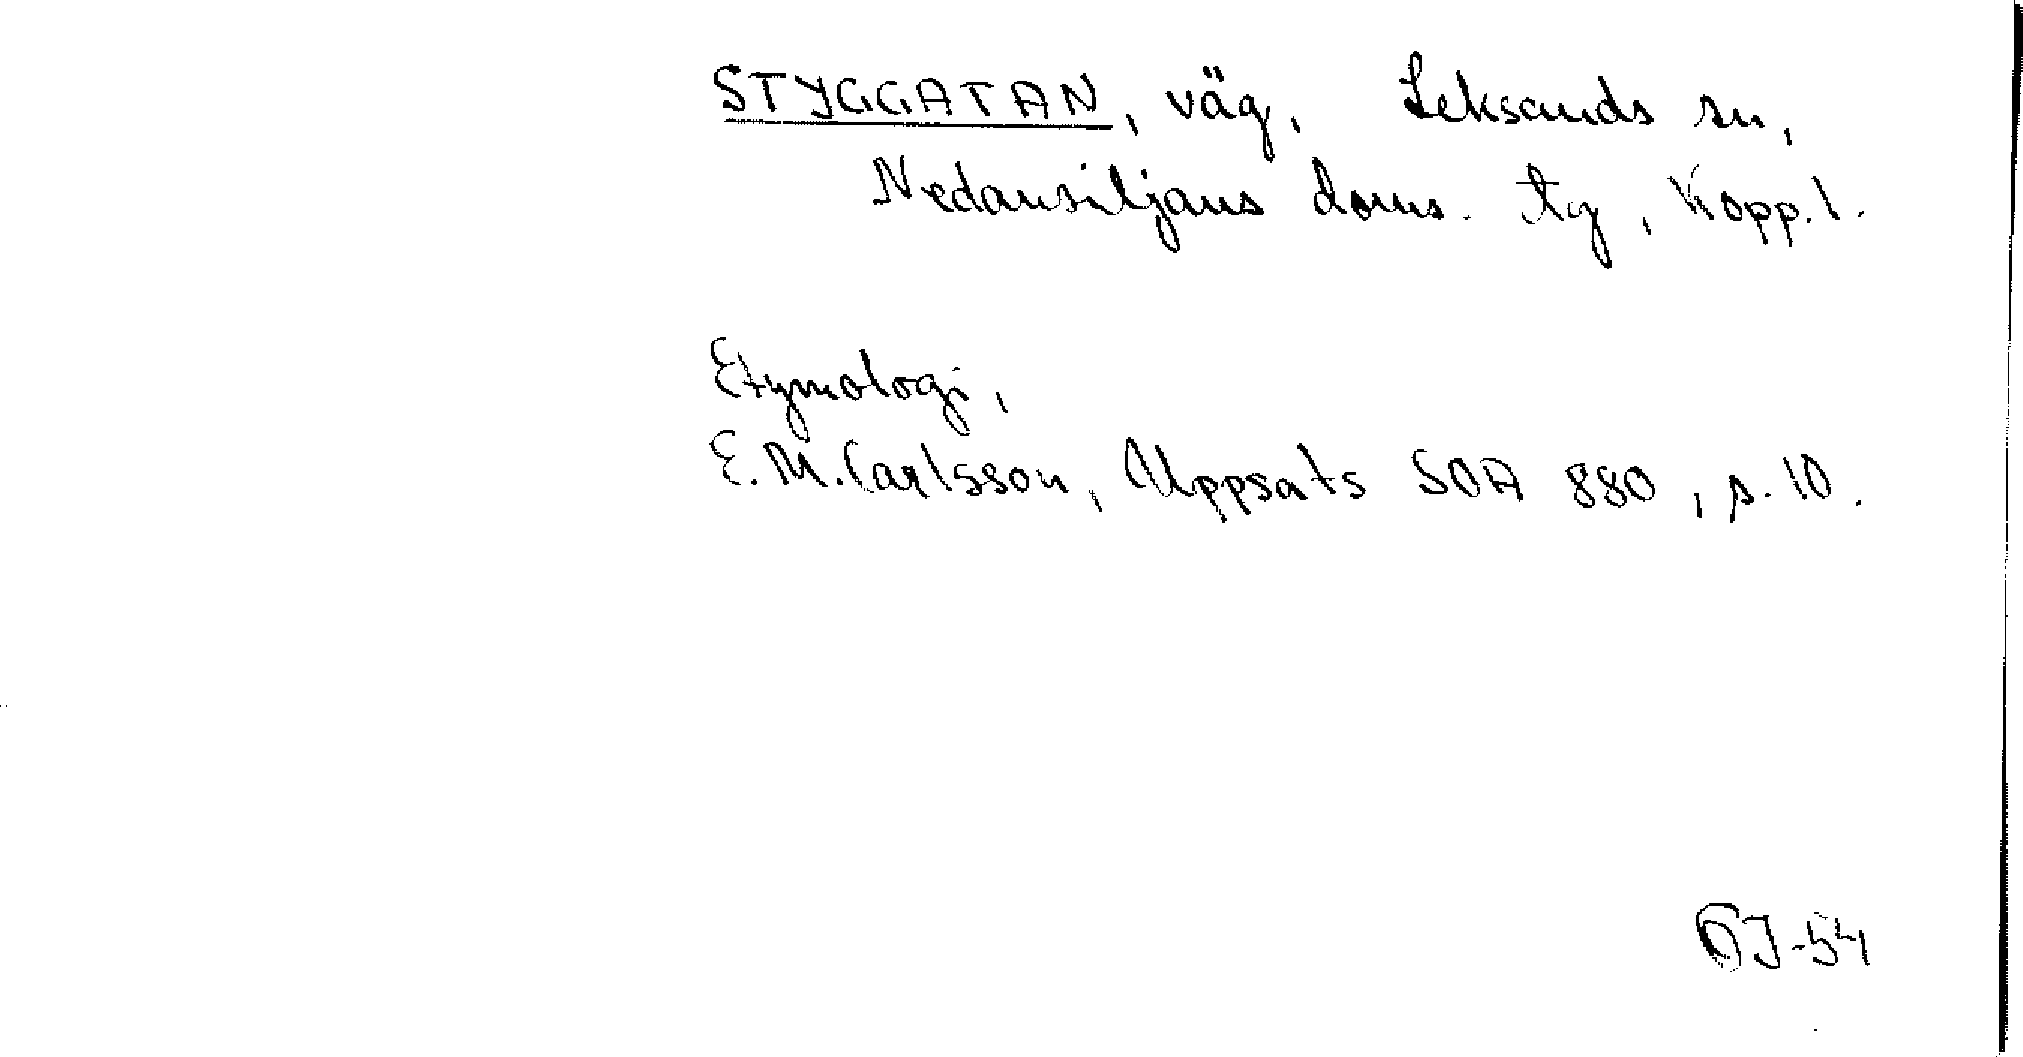 STYGGATAN, väg, Leksands sn,
Nedansiljans doms. tg, Kopp. l.
Etymologi,
E. M. Carlsson, Uppsats SOA 880, s. 10.
-54